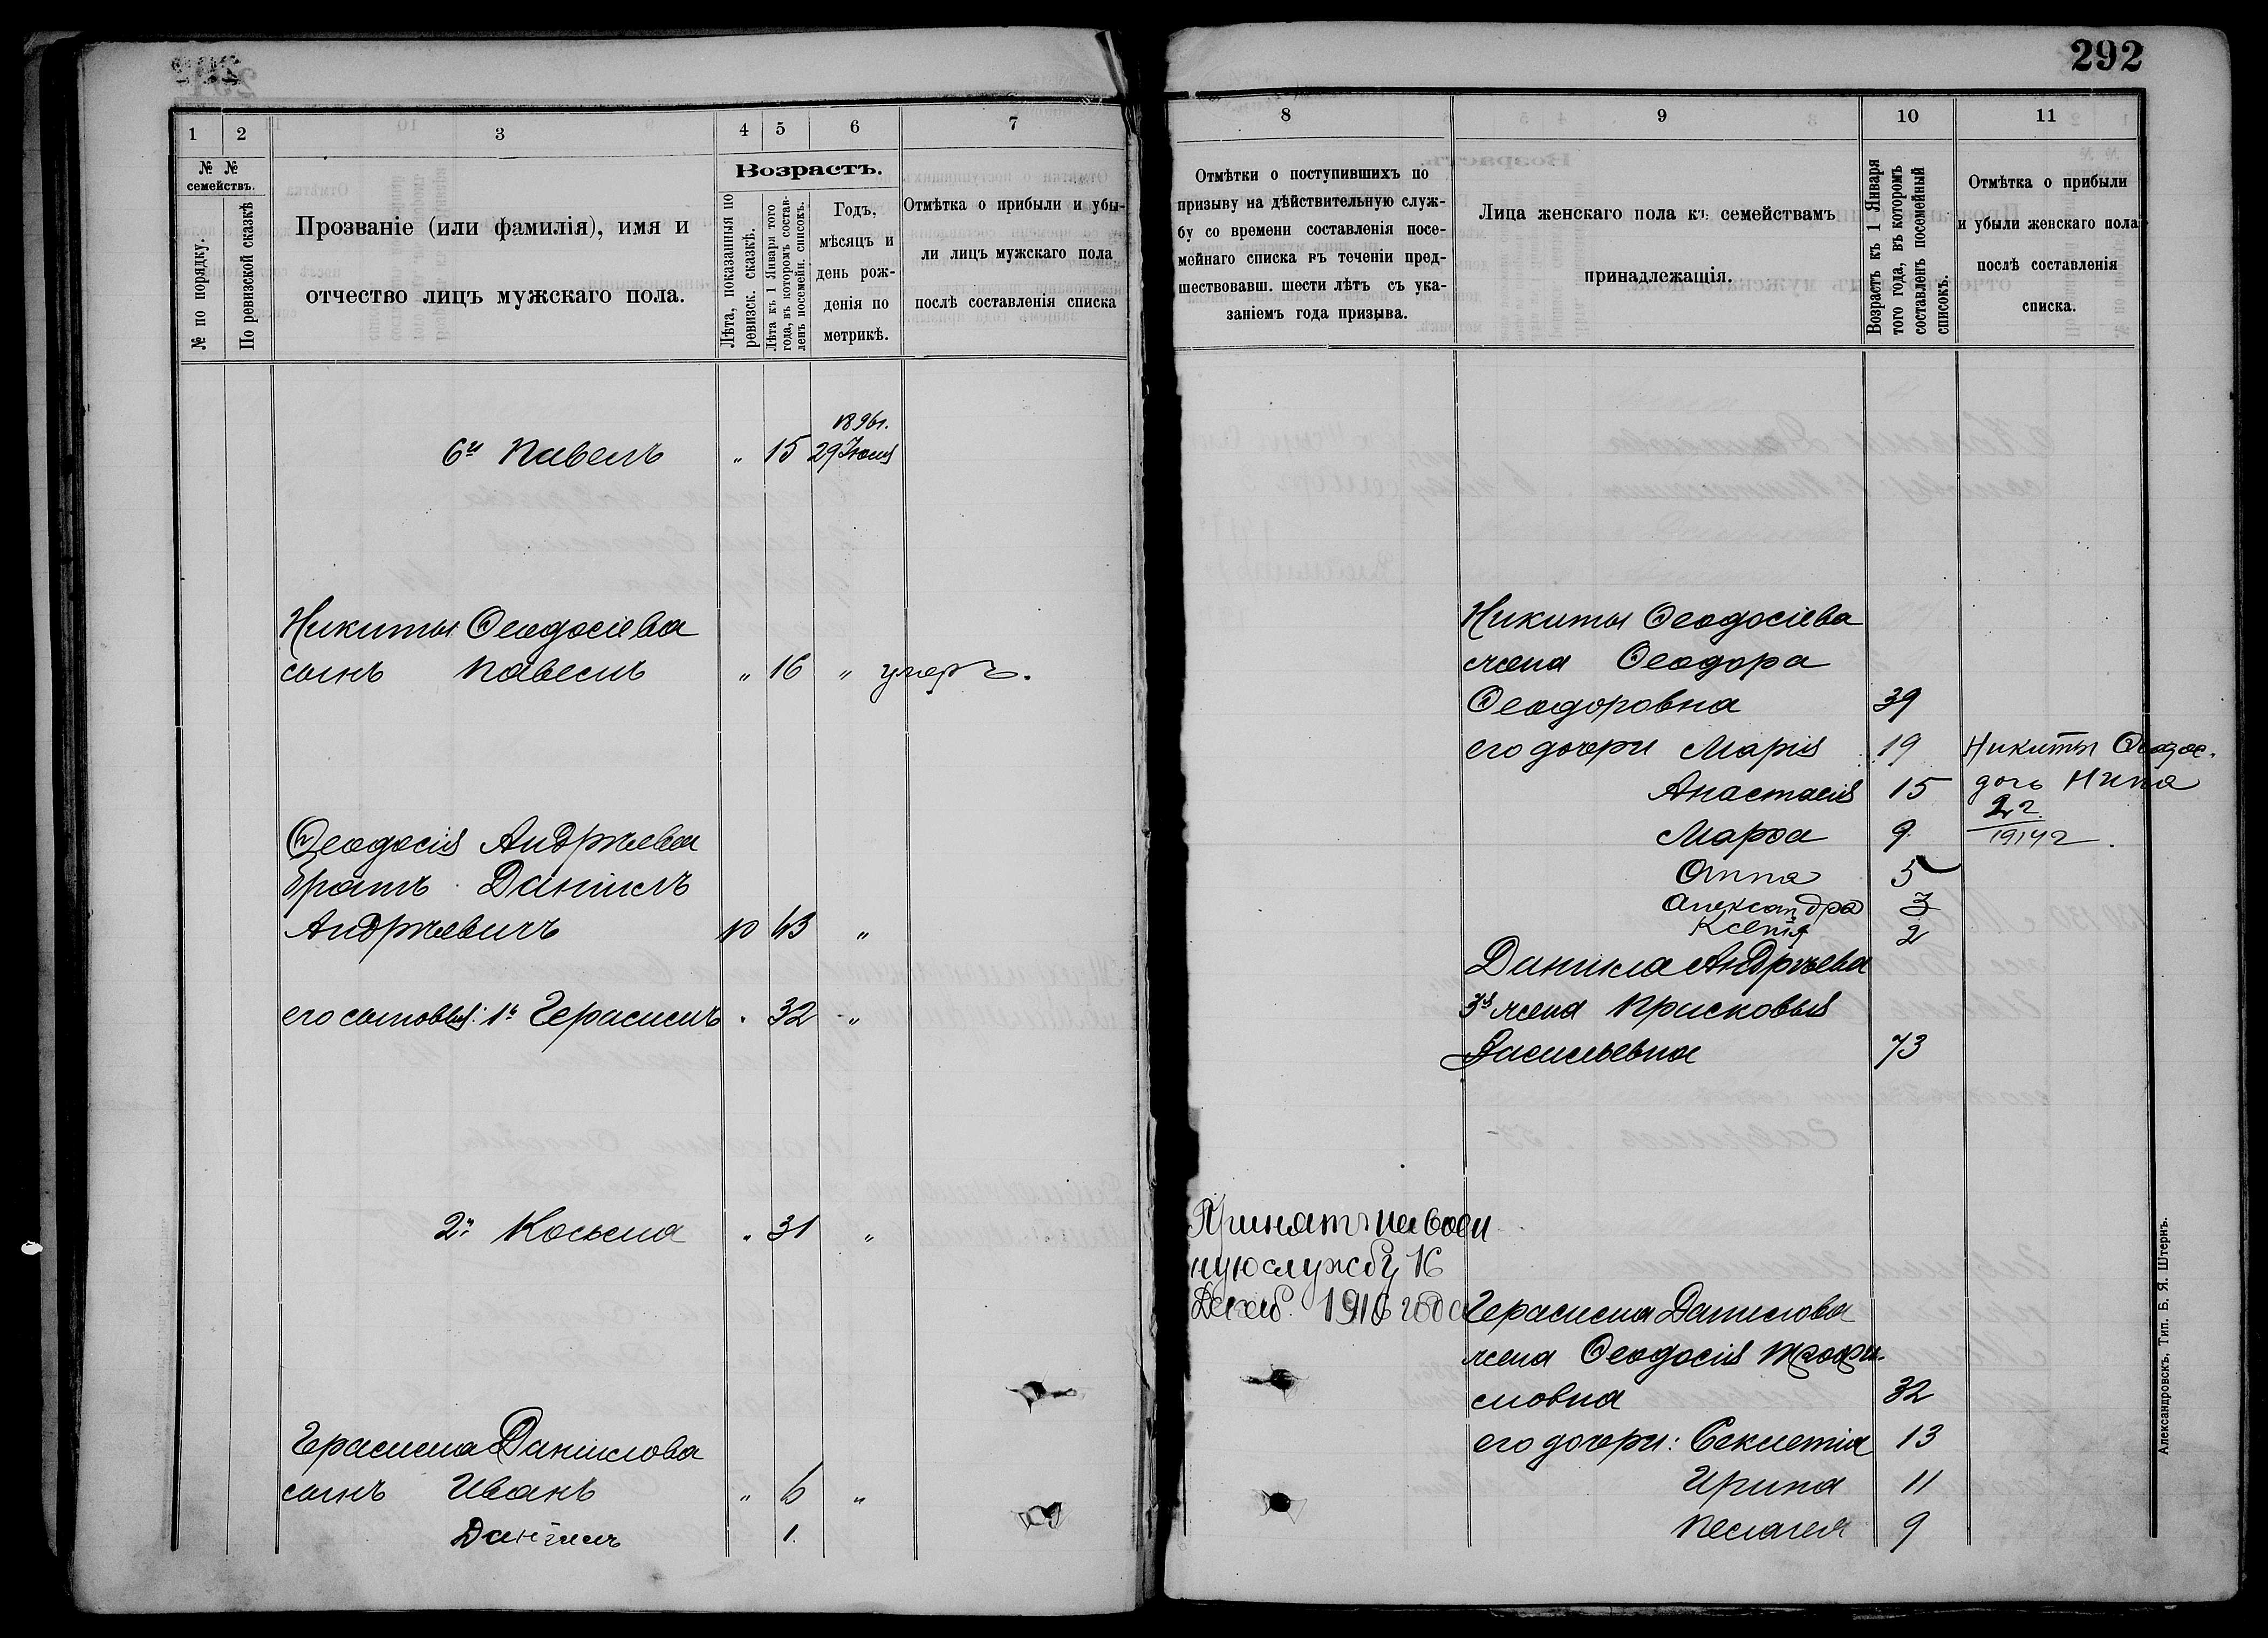 292
1 2 3 4 5 6 7
№ № семействъ.
№ по порядку.
По ревизской сказкѣ
Прозваніе (или фамилія), имя и
отчество лицъ мужскаго пола.
Возрастъ.
Лѣта, показанныя по
ревизск. сказкѣ.
Лѣта къ 1 Января того
года, въ которомъ состав-
ленъ посемейн. списокъ.
Годъ,
мѣсяцъ и
день рож-
денія по
метрикѣ.
Отмѣтка о прибыли и убы-
ли лицъ мужскаго пола
послѣ составленія списка
1896г.
6й Павелъ " 15 29 Іюня
Никиты Ѳеодосіева
сынъ Павелъ " 16 " умеръ.
Ѳеодосія Андрѣева
братъ Даніилъ
Андрѣевичъ 10 43 "
его сыновья: 1й Герасимъ " 32 "
2й Косьма " 31 "
Герасима Даніилова
сынъ Иванъ " 6 "
Даніилъ 1.
8 9 10 11
Отмѣтки о поступившихъ по
призыву на дѣйствительную служ-
бу со времени составленія посе-
мейнаго списка въ теченіи пред-
шествовавш. шести лѣтъ съ ука-
заніемъ года призыва.
Лица женскаго пола къ семействамъ
принадлежащія.
Возрастъ къ 1 Января
того года, въ которомъ
составленъ посемейный
списокъ.
Отмѣтка о прибыли
и убыли женскаго пола
послѣ составленія
списка.
Никиты Ѳеодосіева
жена Ѳеодора
Ѳеодоровна 39
его дочери Марія 19
Анастасія 15
Марѳа 9
Анна 5
Александра 3
Ксенія 2
Никиты Ѳеодос.
дочь Нина
2 г.
1914 г.
Даніила Андрѣева
3я жена Прасковья
Васильевна 73
Принятъ на воен
ную службу 16
Декаб. 1916 года
Герасима Данилова
жена Ѳеодосія Трофи-
мовна 32
его дочери: Секлетія 13
Ирина 11
Пелагея 9
Александровскъ, Тип. Б. Я. Штернъ.